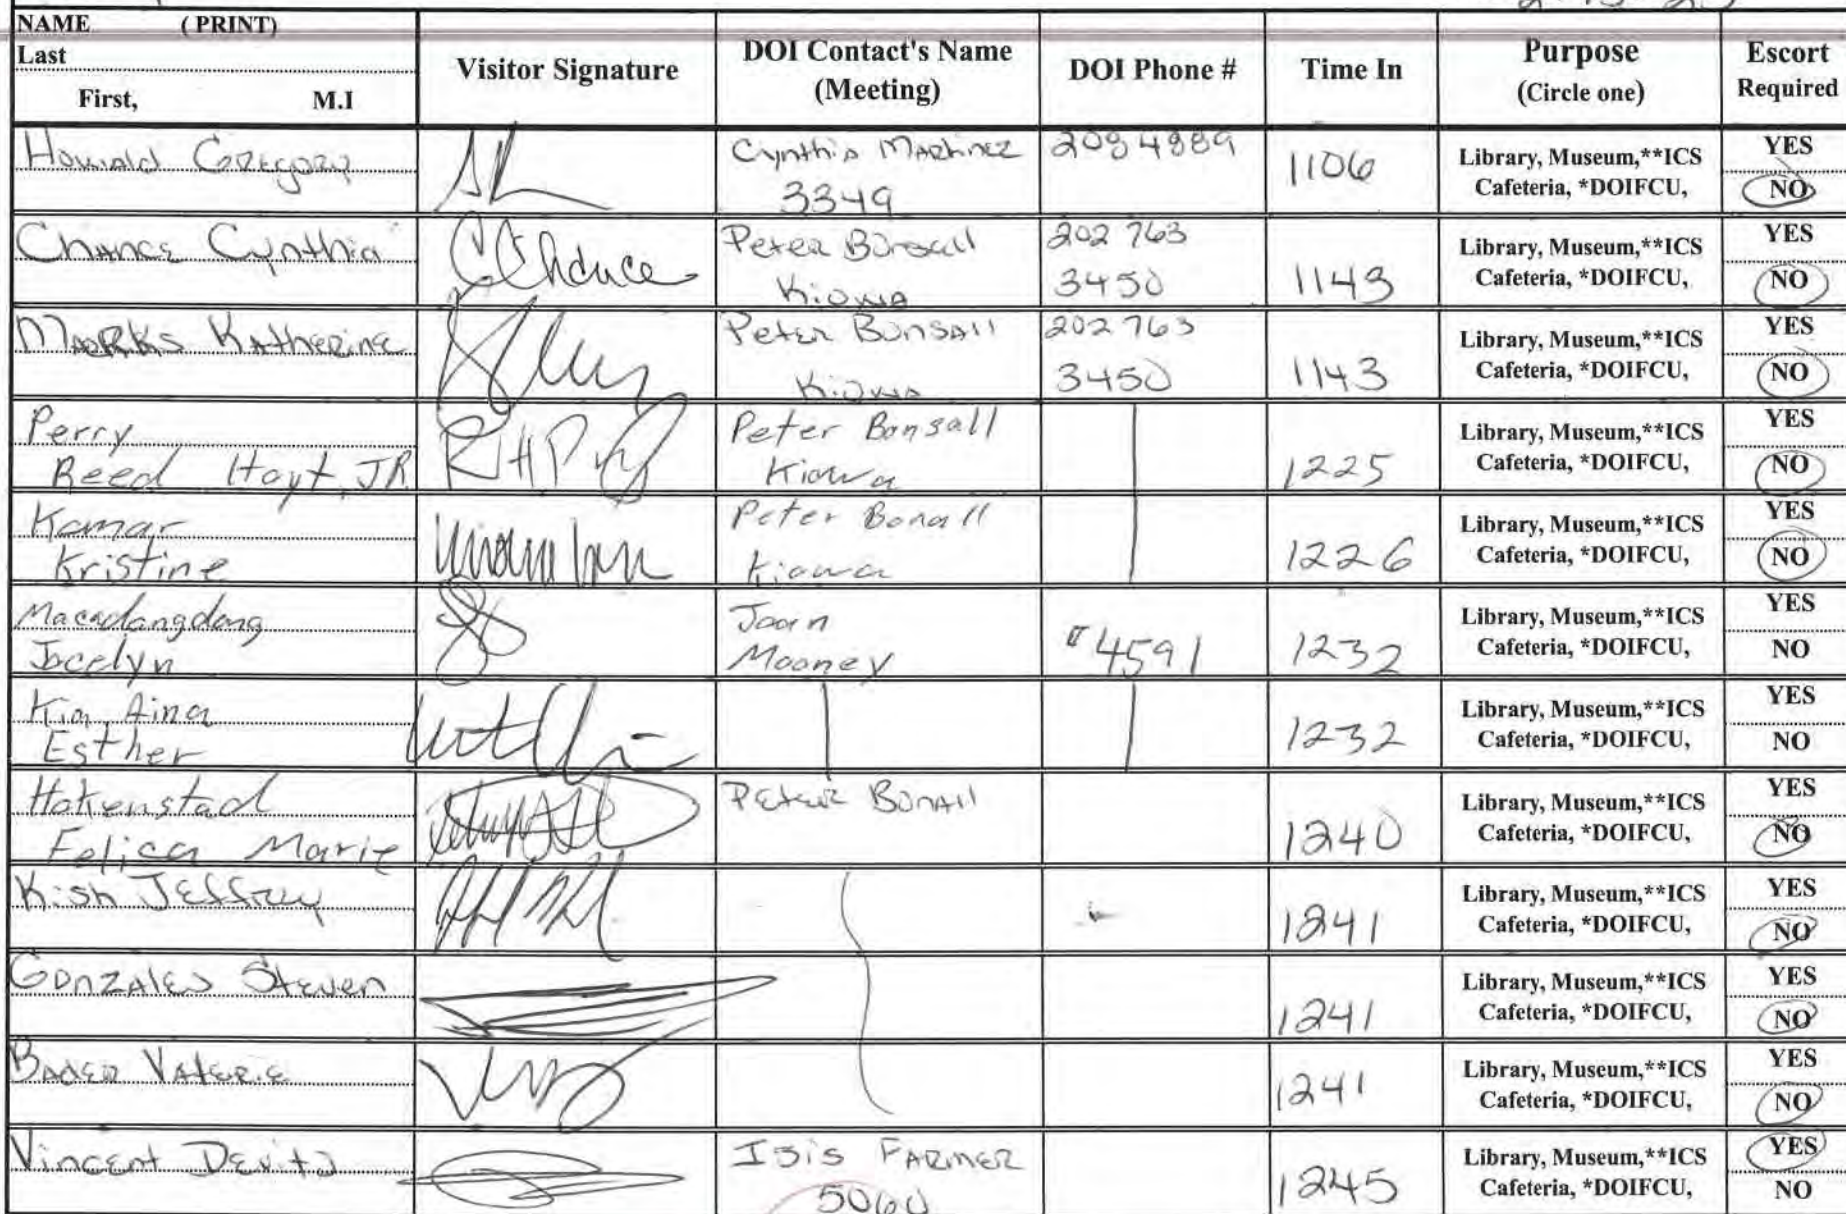 NAME (PRINT)
Last
First, M.I
Visitor Signature
DOI Contact's Name
(Meeting)
DOI Phone #
Time In
Purpose
(Circle one)
Escort
Required
Howald Gregory
Cynthia Martinez
3349
2084989
1106
Library, Museum,**ICS
Cafeteria, *DOIFCU,
YES
NO
Chance Cynthia
CChance
Peter Bonsall
Kiowa
202 763
3450
1143
Library, Museum,**ICS
Cafeteria, *DOIFCU,
YES
NO
Marks Katherine
Peter Bonsall
Kiowa
202 763
3450
1143
Library, Museum,**ICS
Cafeteria, *DOIFCU,
YES
NO
Perry
Reed Hoyt, JR
Peter Bonsall
Kiowa
1225
Library, Museum,**ICS
Cafeteria, *DOIFCU,
YES
NO
Kamar
Kristine
Peter Bonall
Kiowa
1226
Library, Museum,**ICS
Cafeteria, *DOIFCU,
YES
NO
Macadangdang
Jocelyn
Joan
Mooney
4591
1232
Library, Museum,**ICS
Cafeteria, *DOIFCU,
YES
NO
Kia, Aina
Esther
1232
Library, Museum,**ICS
Cafeteria, *DOIFCU,
YES
NO
Hakenstad
Felica Marie
Peter Bonall
1240
Library, Museum,**ICS
Cafeteria, *DOIFCU,
YES
NO
Kish Jeffrey
1241
Library, Museum,**ICS
Cafeteria, *DOIFCU,
YES
NO
Gonzales Steven
1241
Library, Museum,**ICS
Cafeteria, *DOIFCU,
YES
NO
Bader Valerie
1241
Library, Museum,**ICS
Cafeteria, *DOIFCU,
YES
NO
Vincent Devito
Isis Farmer
5060
1245
Library, Museum,**ICS
Cafeteria, *DOIFCU,
YES
NO